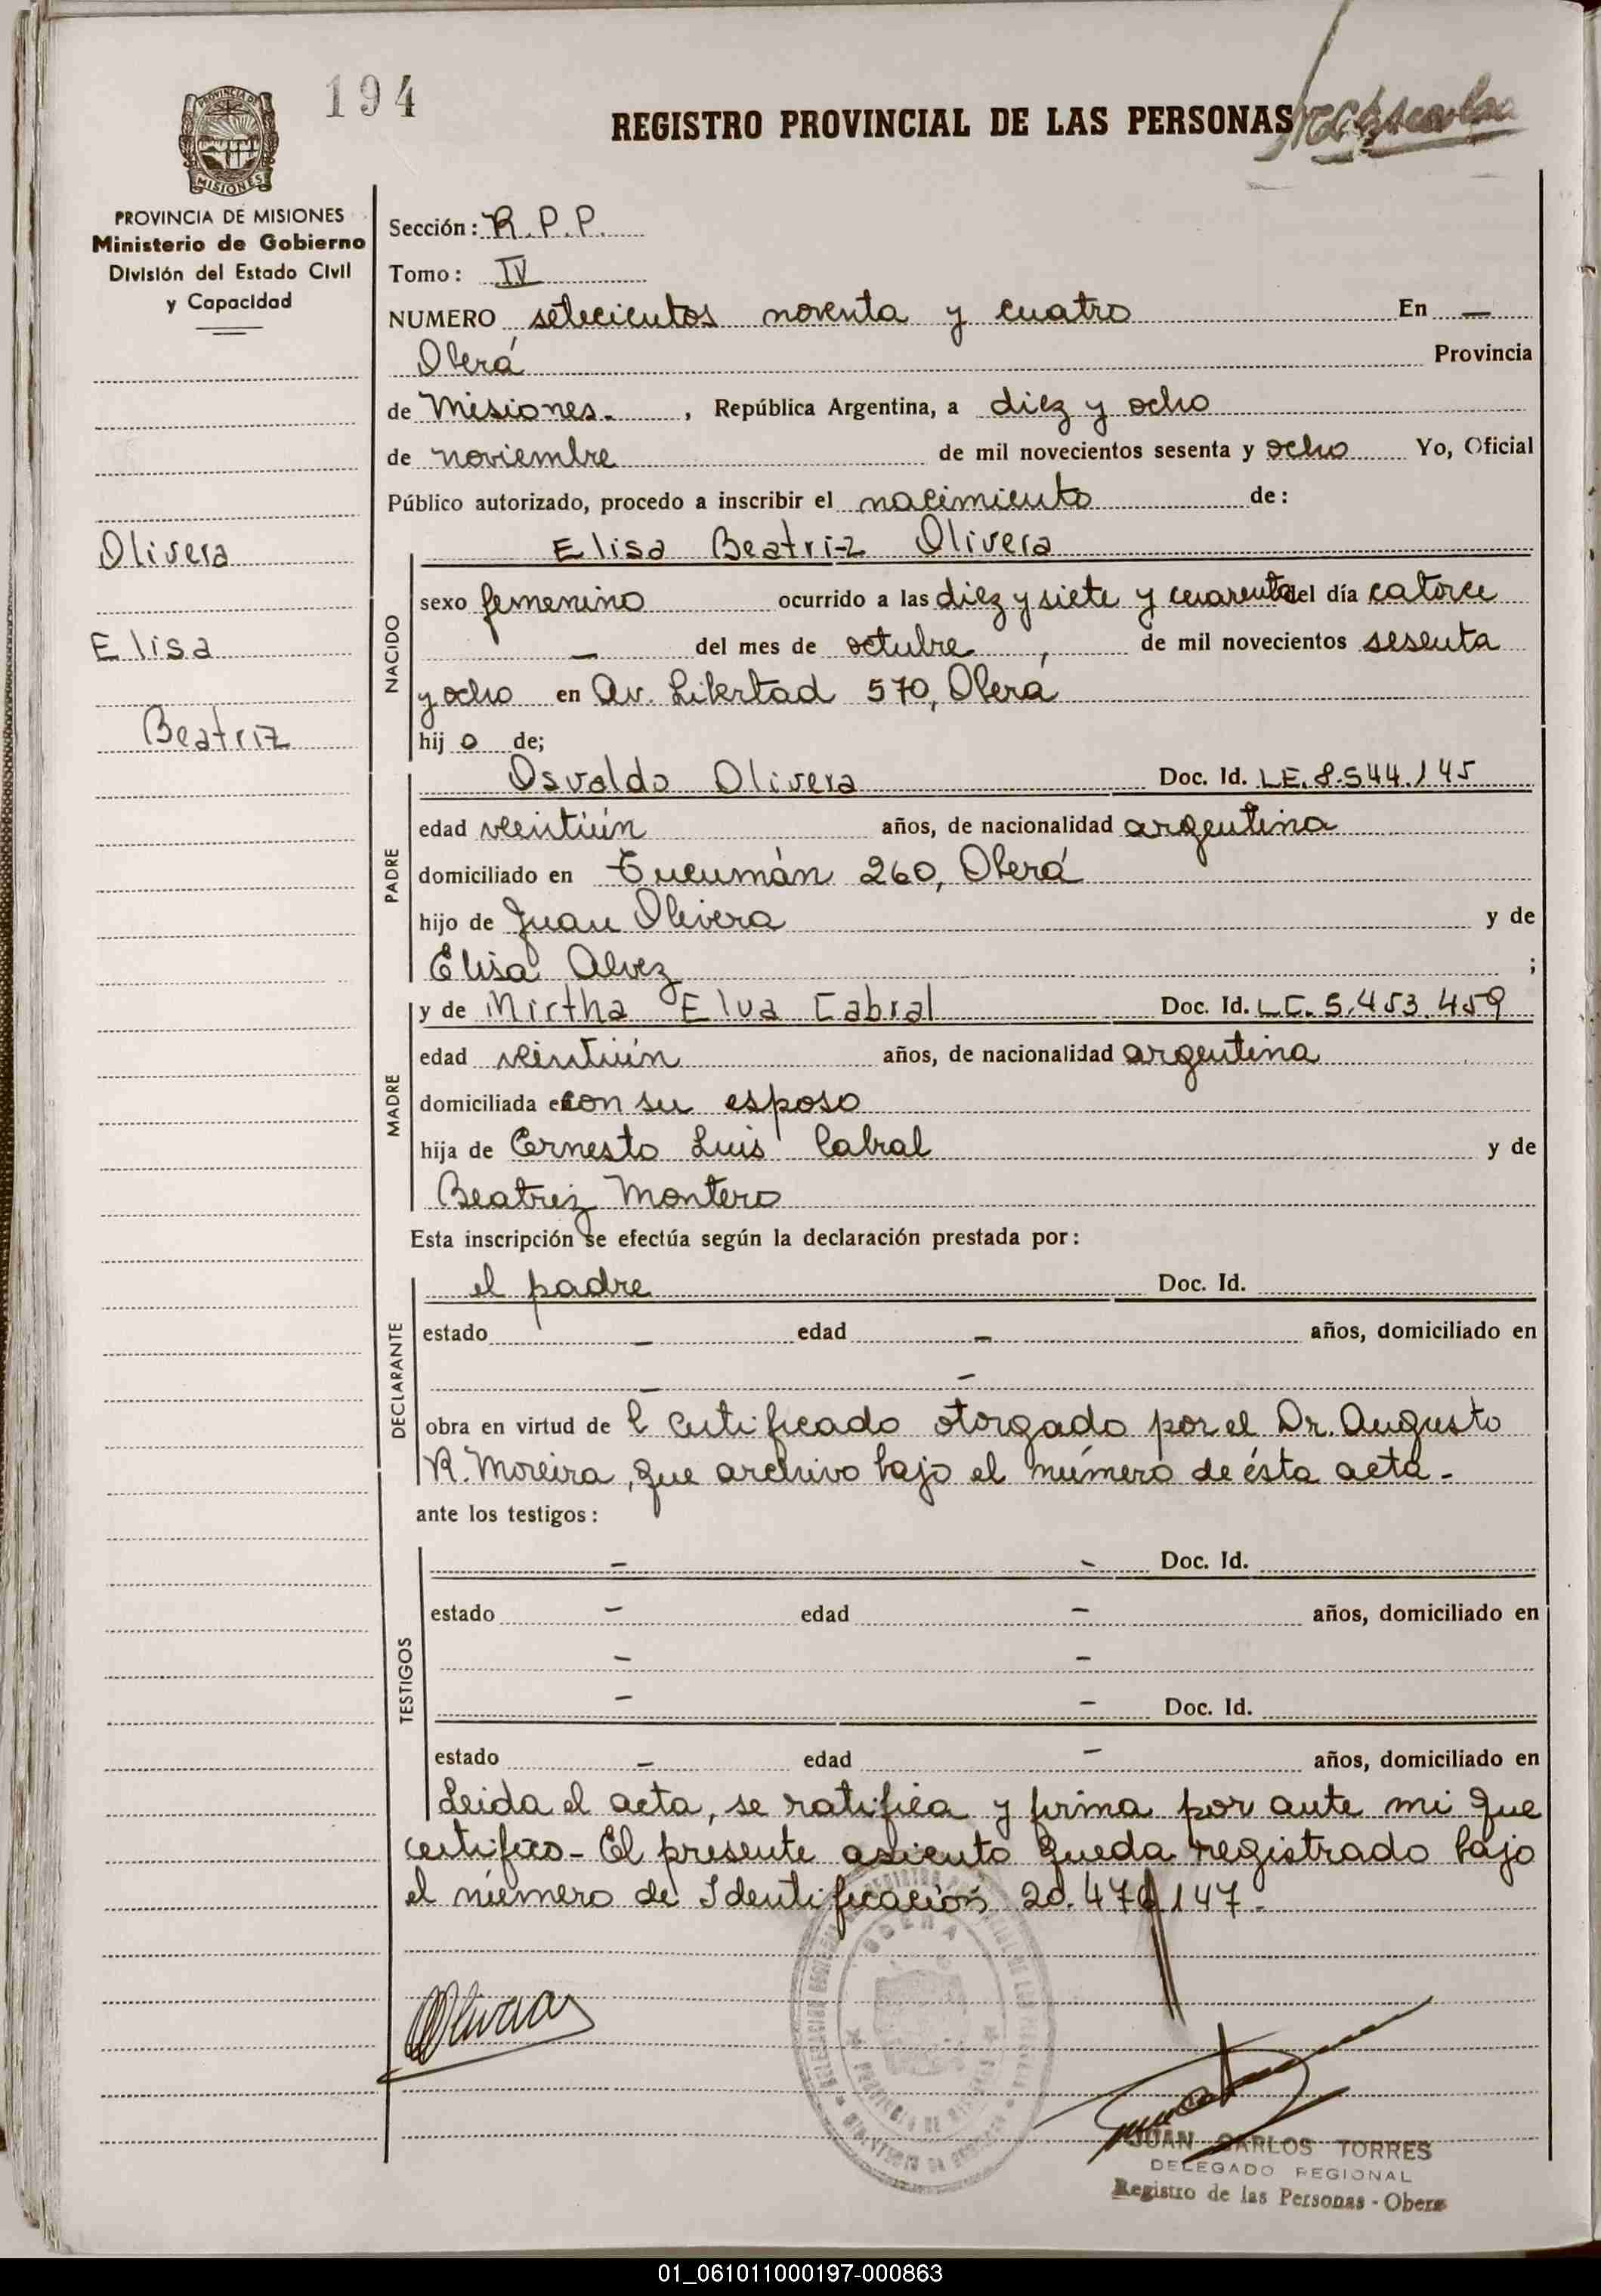 194
REGISTRO PROVINCIAL DE LAS PERSONAS
PROVINCIA DE MISIONES
PROVINCIA DE MISIONES
Ministerio de Gobierno
División del Estado Civil
y Capacidad
Sección: R.P.P.
Tomo: IV
NUMERO setecientos noventa y cuatro En —
Oberá Provincia
de Misiones.- , República Argentina, a diez y ocho
de noviembre de mil novecientos sesenta y ocho Yo, Oficial
Público autorizado, procedo a inscribir el nacimiento de:
Olivera
Elisa
Beatriz
NACIDO
Elisa Beatriz Olivera
sexo femenino ocurrido a las diez y siete y cuarenta del día catorce
— del mes de octubre , de mil novecientos sesenta
y ocho en Av. Libertad 570, Oberá
hij o de;
PADRE
Osvaldo Olivera Doc. Id. L.E. 8.544.145
edad veintiún años, de nacionalidad argentina
domiciliado en Tucumán 260, Oberá
hijo de Juan Olivera y de
Elisa Alvez ;
MADRE
y de Mirtha Elva Cabral Doc. Id. L.C. 5.453.459
edad veintiún años, de nacionalidad argentina
domiciliada en con su esposo
hija de Ernesto Luis Cabral y de
Beatriz Montero
Esta inscripción se efectúa según la declaración prestada por:
DECLARANTE
el padre Doc. Id.
estado — edad — años, domiciliado en
— —
obra en virtud de l certificado otorgado por el Dr. Augusto
R. Moreira, que archivo bajo el número de ésta acta.-
ante los testigos:
TESTIGOS
— — Doc. Id.
estado — edad — años, domiciliado en
— —
— — Doc. Id.
estado — edad — años, domiciliado en
Leida el acta, se ratifica y firma por ante mi que
certifico - El presente asiento queda registrado bajo
el número de Identificación 20.47 147.-
Olivera
OBERA
PROVINCIA DE MISIONES
JUAN CARLOS TORRES
DELEGADO REGIONAL
Registro de las Personas - Obera
01_061011000197-000863